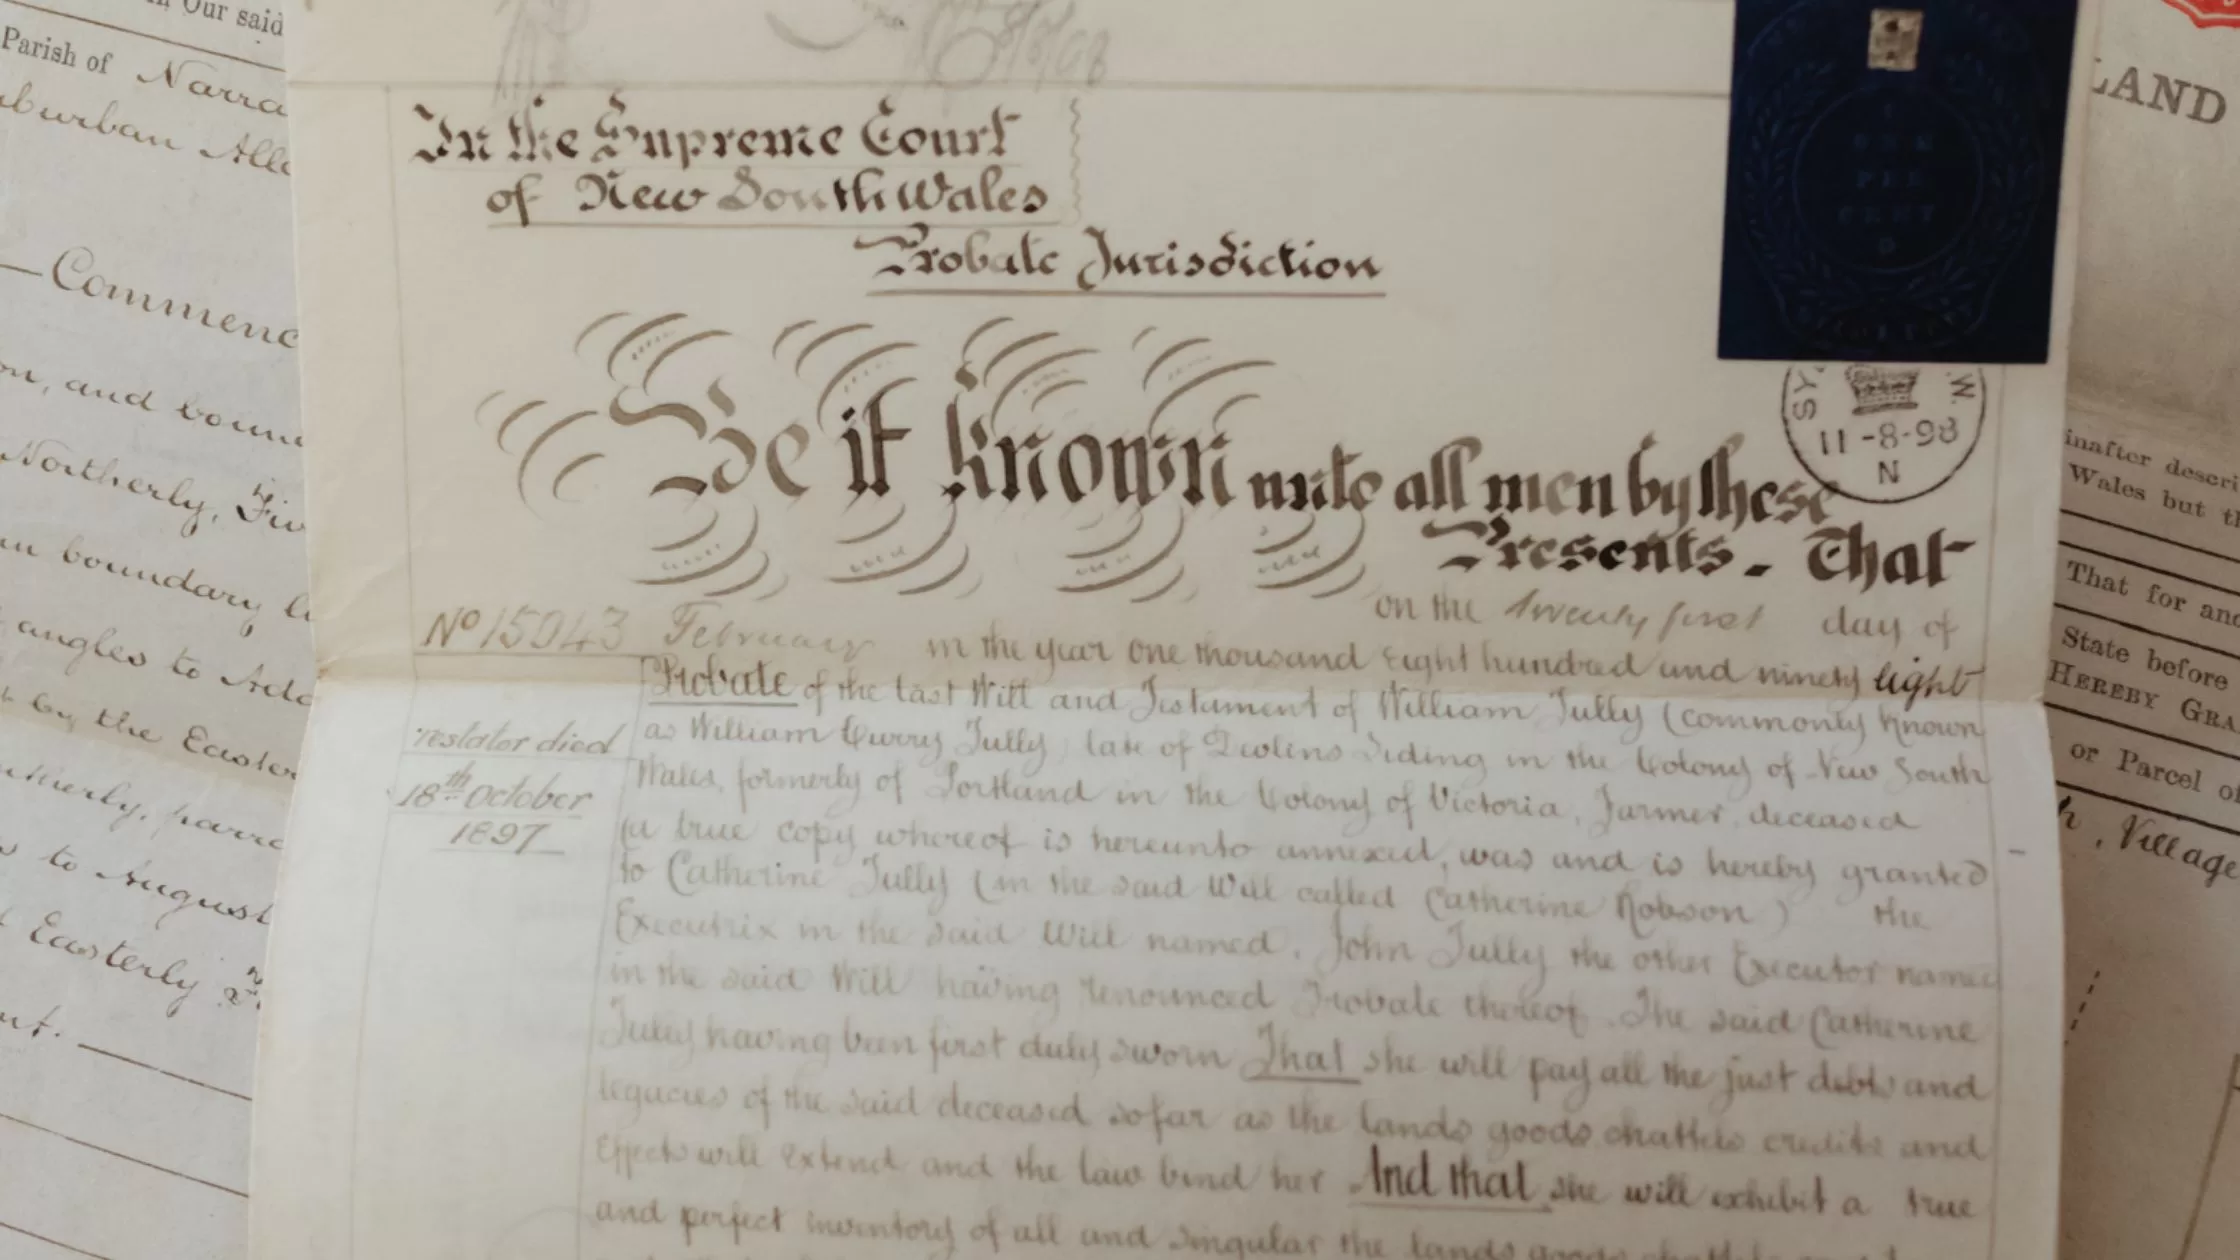 Our said
Parish of Narra
burban Allo
Commenc
and boun
Northerly, Fiv
boundary li
angles to Ade
by the Easter
to August
Easterly
In the Supreme Court
of New South Wales
Probate Jurisdiction
Be it Known unto all men by these
Presents. That
on the twenty first day of
No 15043 February in the year one thousand eight hundred and ninety eight
Probate of the last Will and Testament of William Tully (commonly known
as William Curry Tully) late of Siding in the Colony of New South
Wales, formerly of Portland in the Colony of Victoria, Farmer deceased
(a true copy whereof is hereunto annexed, was and is hereby granted
to Catherine Tully (in the said Will called Catherine Robson) the
Executrix in the said Will named, John Tully the other Executor named
in the said Will having renounced Probate thereof. The said Catherine
Tully having been first duly sworn That she will pay all the just debts and
legacies of the said deceased so far as the lands goods chattels credits and
effects will extend and the law bind her And that she will exhibit a true
and perfect inventory of all and singular the lands goods
testator died
18th October
1897
ONE
PER
CENT
SY W.
11-8-98
N
LAND
inafter descri
Wales but th
That for and
State before
HEREBY GRA
or Parcel of
h, Village